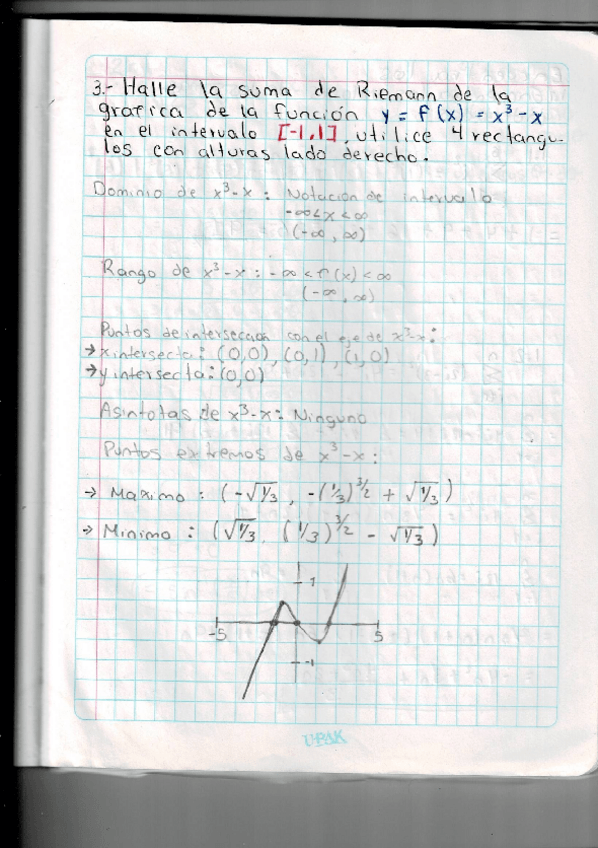 3.- Halle la suma de Riemann de la
grafica de la función y = f(x) = x³-x
en el intervalo [-1,1], utilice 4 rectangu-
los con alturas lado derecho.
Dominio de x³-x : Notación de intervalo
-∞<x<∞
(-∞, ∞)
Rango de x³-x : -∞ < f(x) < ∞
(-∞, ∞)
Puntos de interseccion con el eje de x³-x:
→ x intersecta: (0,0), (0,1), (1,0)
→ y intersecta: (0,0)
Asintotas de x³-x: Ninguno
Puntos extremos de x³-x:
→ Maximo : (-√1/3 , -(1/3)^3/2 + √1/3)
→ Minimo : (√1/3, (1/3)^3/2 - √1/3)
1
-5 5
-1
UPAK